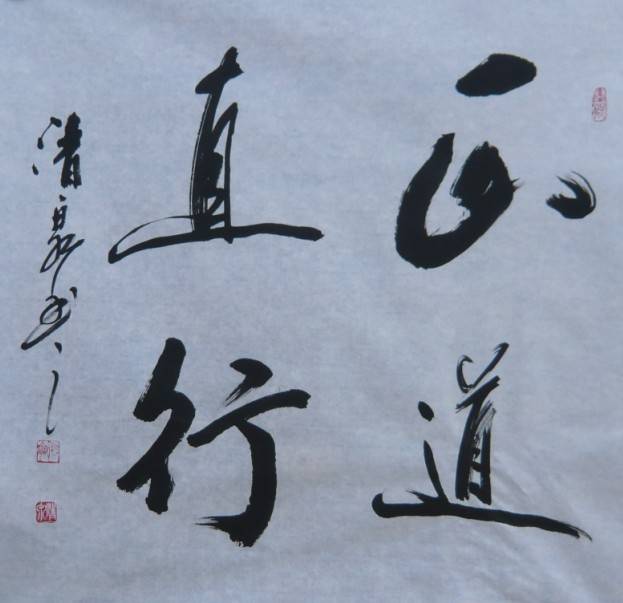 正道
直行
清泉书之